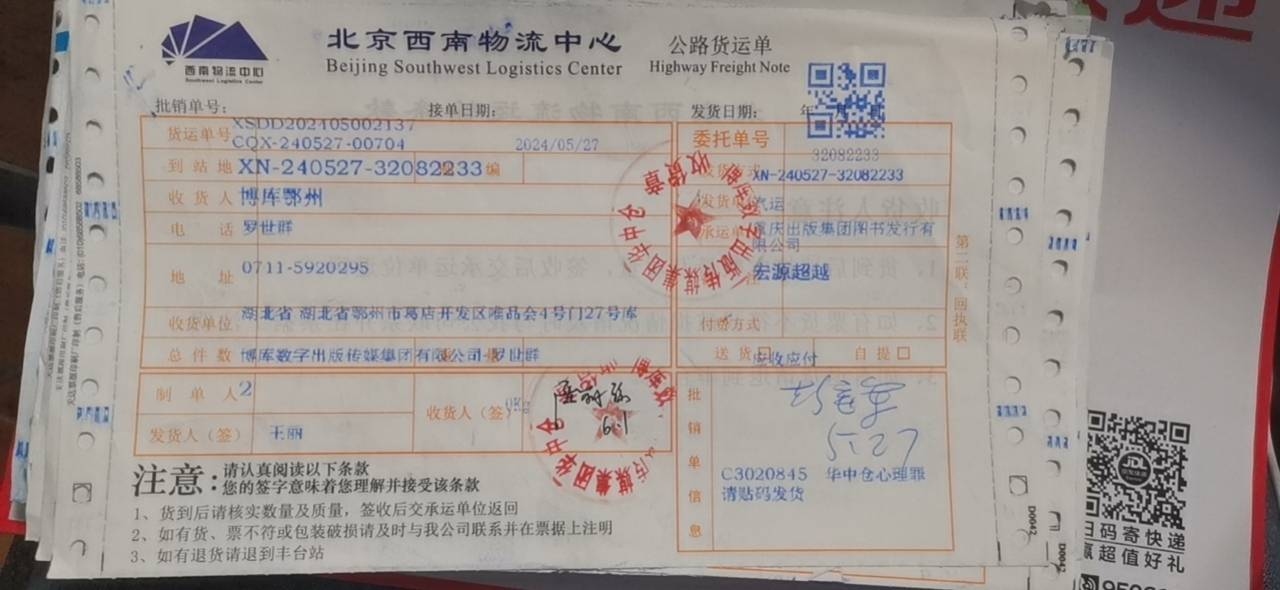 北京西南物流中心
Beijing Southwest Logistics Center
公路货运单
Highway Freight Note
西南物流中心
Southwest Logistics Center
批销单号：
接单日期：
发货日期： 年 月 日
XSDD202405002137
货运单号
CQX-240527-00704
2024/05/27
委托单号
32082233
到站地
XN-240527-32082233
编
XN-240527-32082233
收货人
博库鄂州
发货单
汽运
电话
罗世群
承运单
重庆出版集团图书发行有
限公司
地址
0711-5920295
宏源超越
湖北省 湖北省鄂州市葛店开发区唯品会4号门27号库
收货单位
付款方式
总件数
博库数字出版传媒集团有限公司 罗世群
送货
应收应付
自提
制单人
2
收货人（签）
发货人（签）
王丽
6.1
批销单信息
5.27
C3020845 华中仓心理罪
请贴码发货
第二联：回执联
收货章
注意：
请认真阅读以下条款
您的签字意味着您理解并接受该条款
1、货到后请核实数量及质量，签收后交承运单位返回
2、如有货、票不符或包装破损请及时与我公司联系并在票据上注明
3、如有退货请退到丰台站
D0042
D0042
JDL
扫码寄快递
赢超值好礼